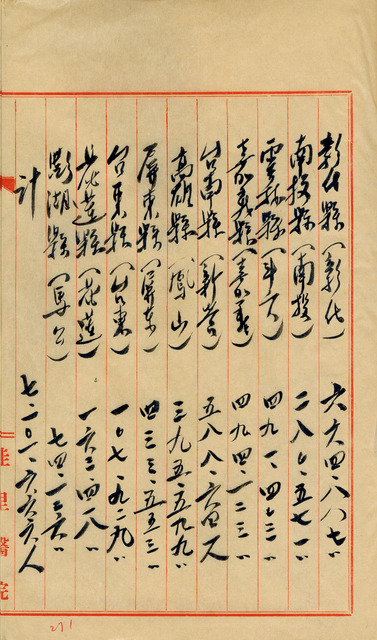 彰化縣（彰化） 六六四、八八七〃
南投縣（南投） 二八〇、五七一〃
雲林縣（斗六） 四九一、四〇三〃
嘉義縣（嘉義） 四九四、一二三〃
台南縣（新營） 五八八、六四人
高雄縣（鳳山） 三九五、五九九〃
屏東縣（屏東） 四三三、五五三〃
台東縣（台東） 一〇七、九二九〃
花蓮縣（花蓮） 一六三、四一八〃
澎湖縣（馬公） 七四、二三六〃
計 七、二〇一、六六六人
佳里醫院
271